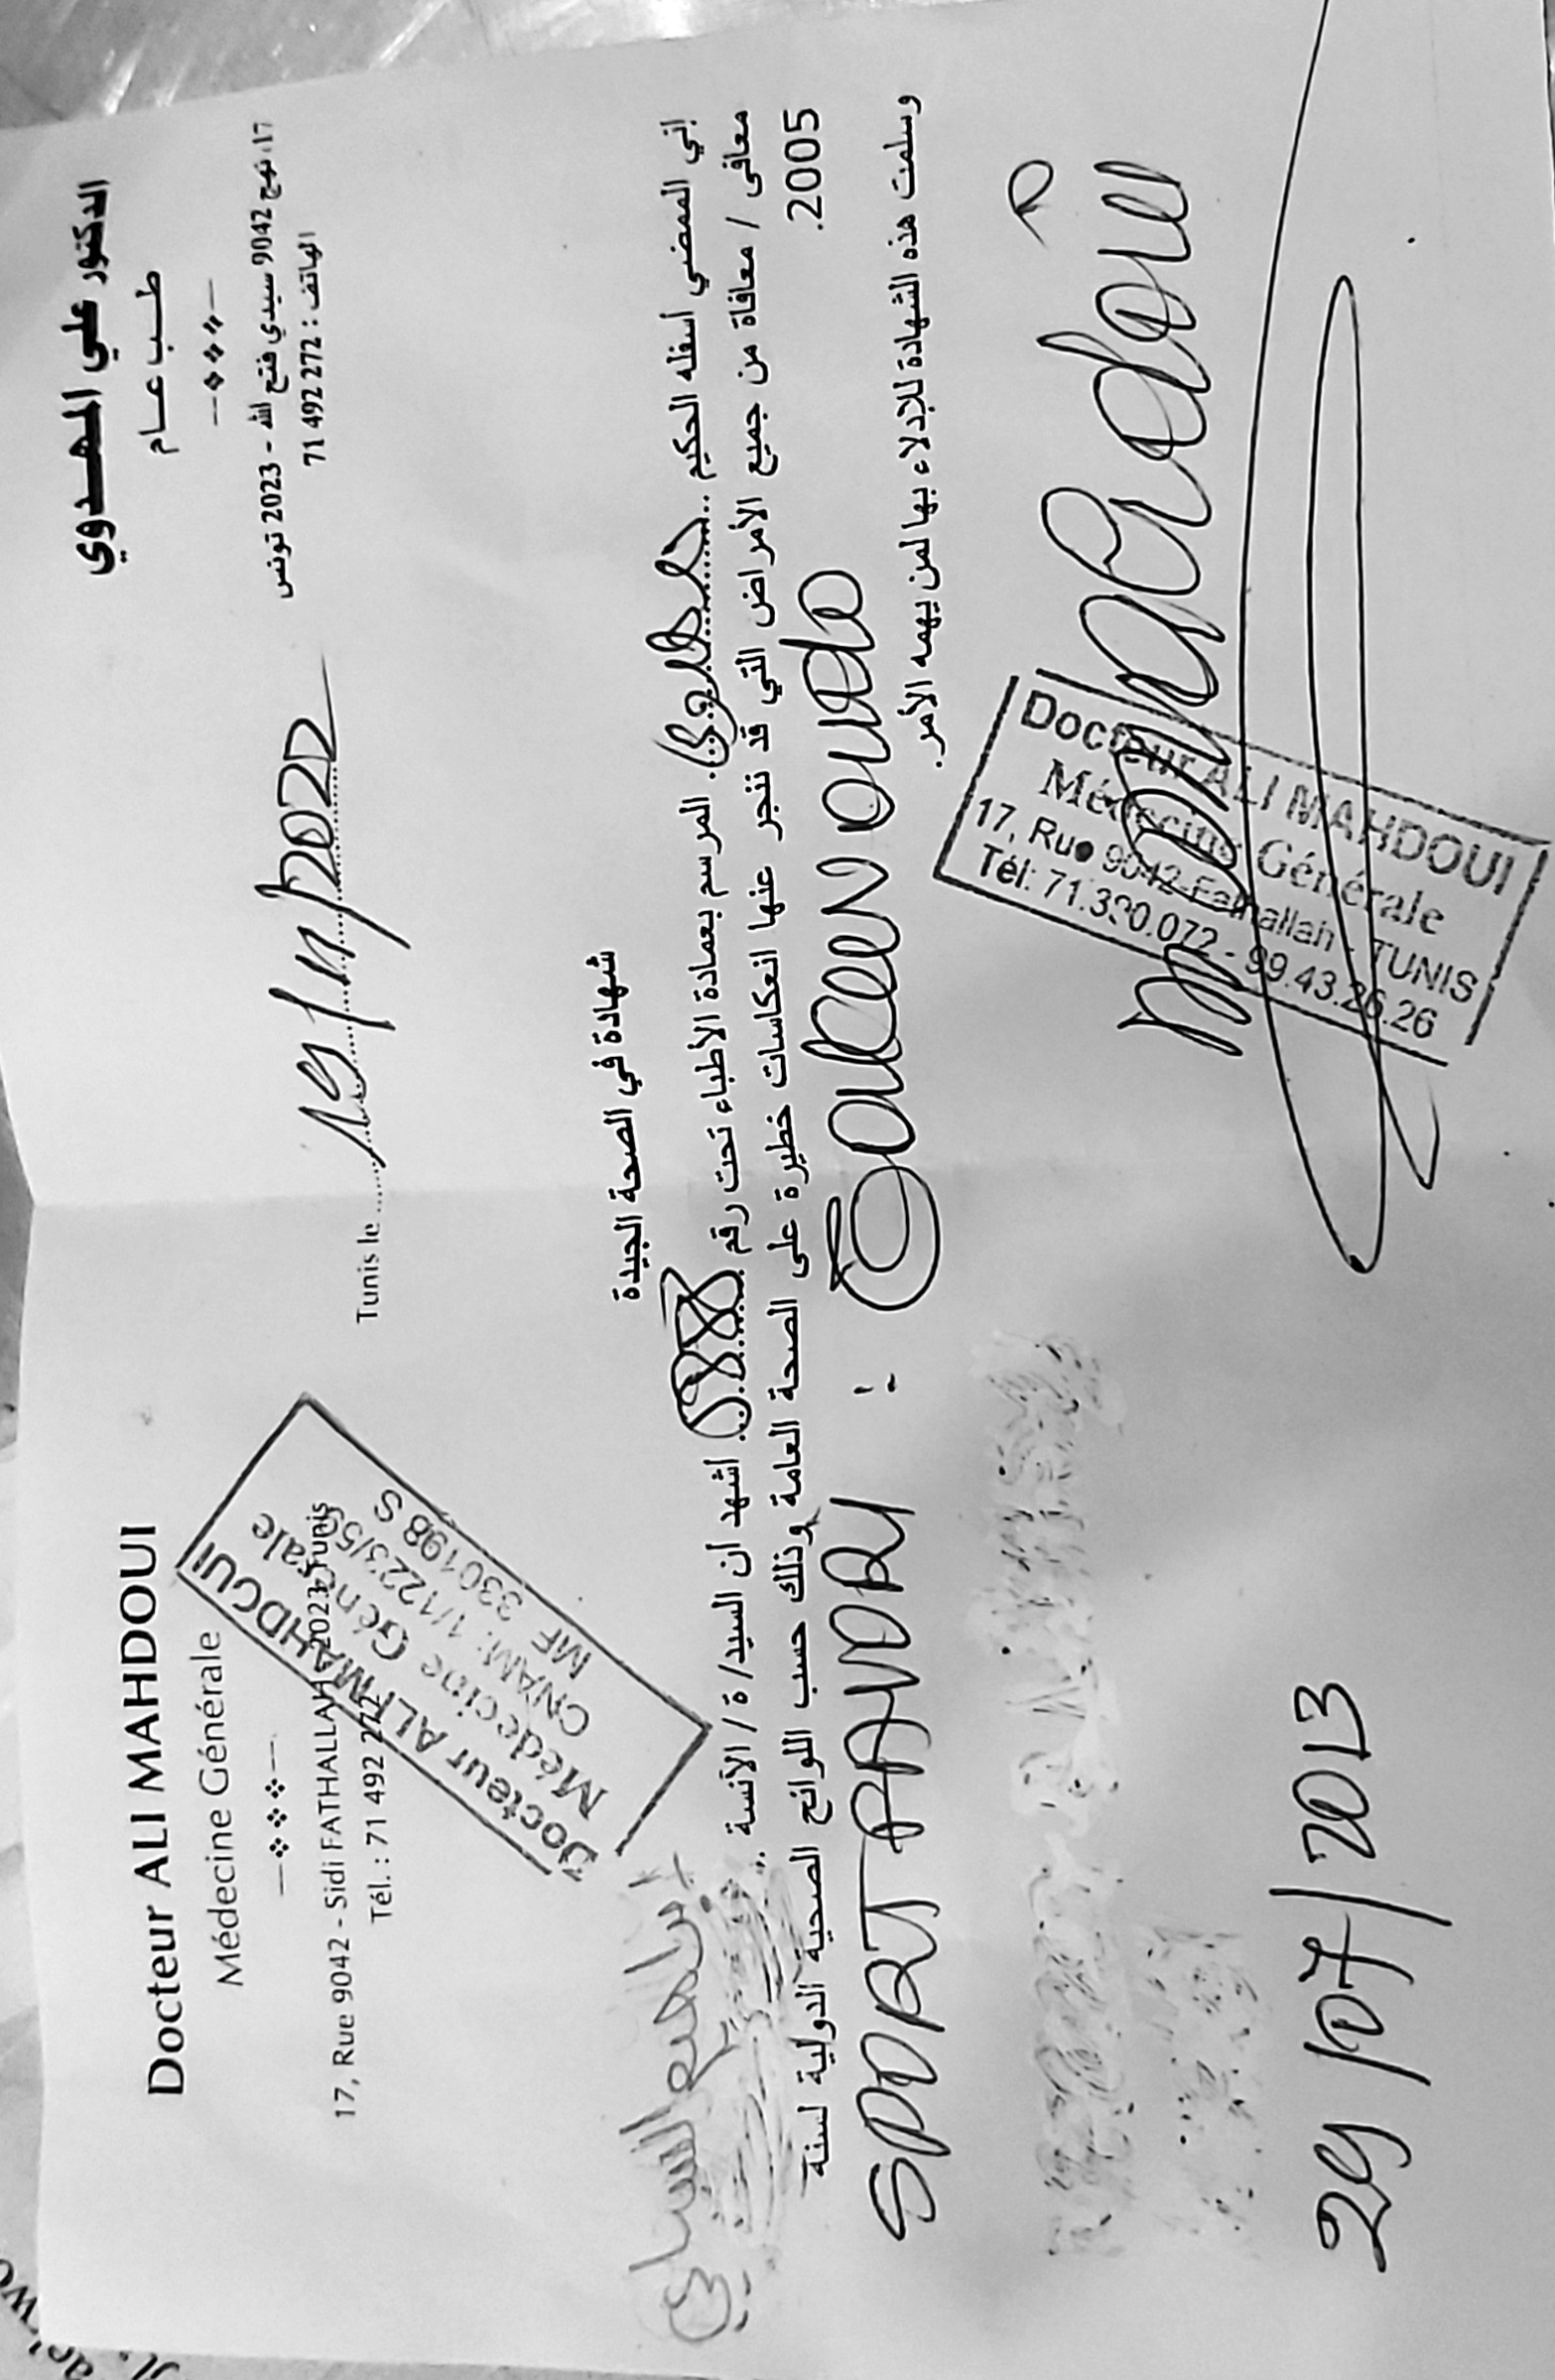 Docteur ALI MAHDOUI
Médecine Générale
17, Rue 9042 - Sidi FATHALLAH 2023 Tunis
Tél. : 71 492 272
الدكتور علي المهدوي
طب عام
17، نهج 9042 سيدي فتح الله - 2023 تونس
الهاتف : 71 492 272
Docteur ALI MAHDOUI
Médecine Générale
CNAM: 1/1223/59
MF 330198 S
Tunis le 19/11/2022
شهادة في الصحة الجيدة
إني الممضي أسفله الحكيم .. المرسم بعمادة الأطباء تحت رقم .. أشهد أن السيد/ة / الآنسة ..
معافى / معافاة من جميع الأمراض التي قد تنجر عنها انعكاسات خطيرة على الصحة العامة وذلك حسب اللوائح الصحية الدولية لسنة
2005.
SPORT
وسلمت هذه الشهادة للإدلاء بها لمن يهمه الأمر.
Docteur ALI MAHDOUI
Médecine Générale
17, Rue 9042 Fathallah - TUNIS
Tél: 71.330.072 - 99.43.26.26
29/07/2013